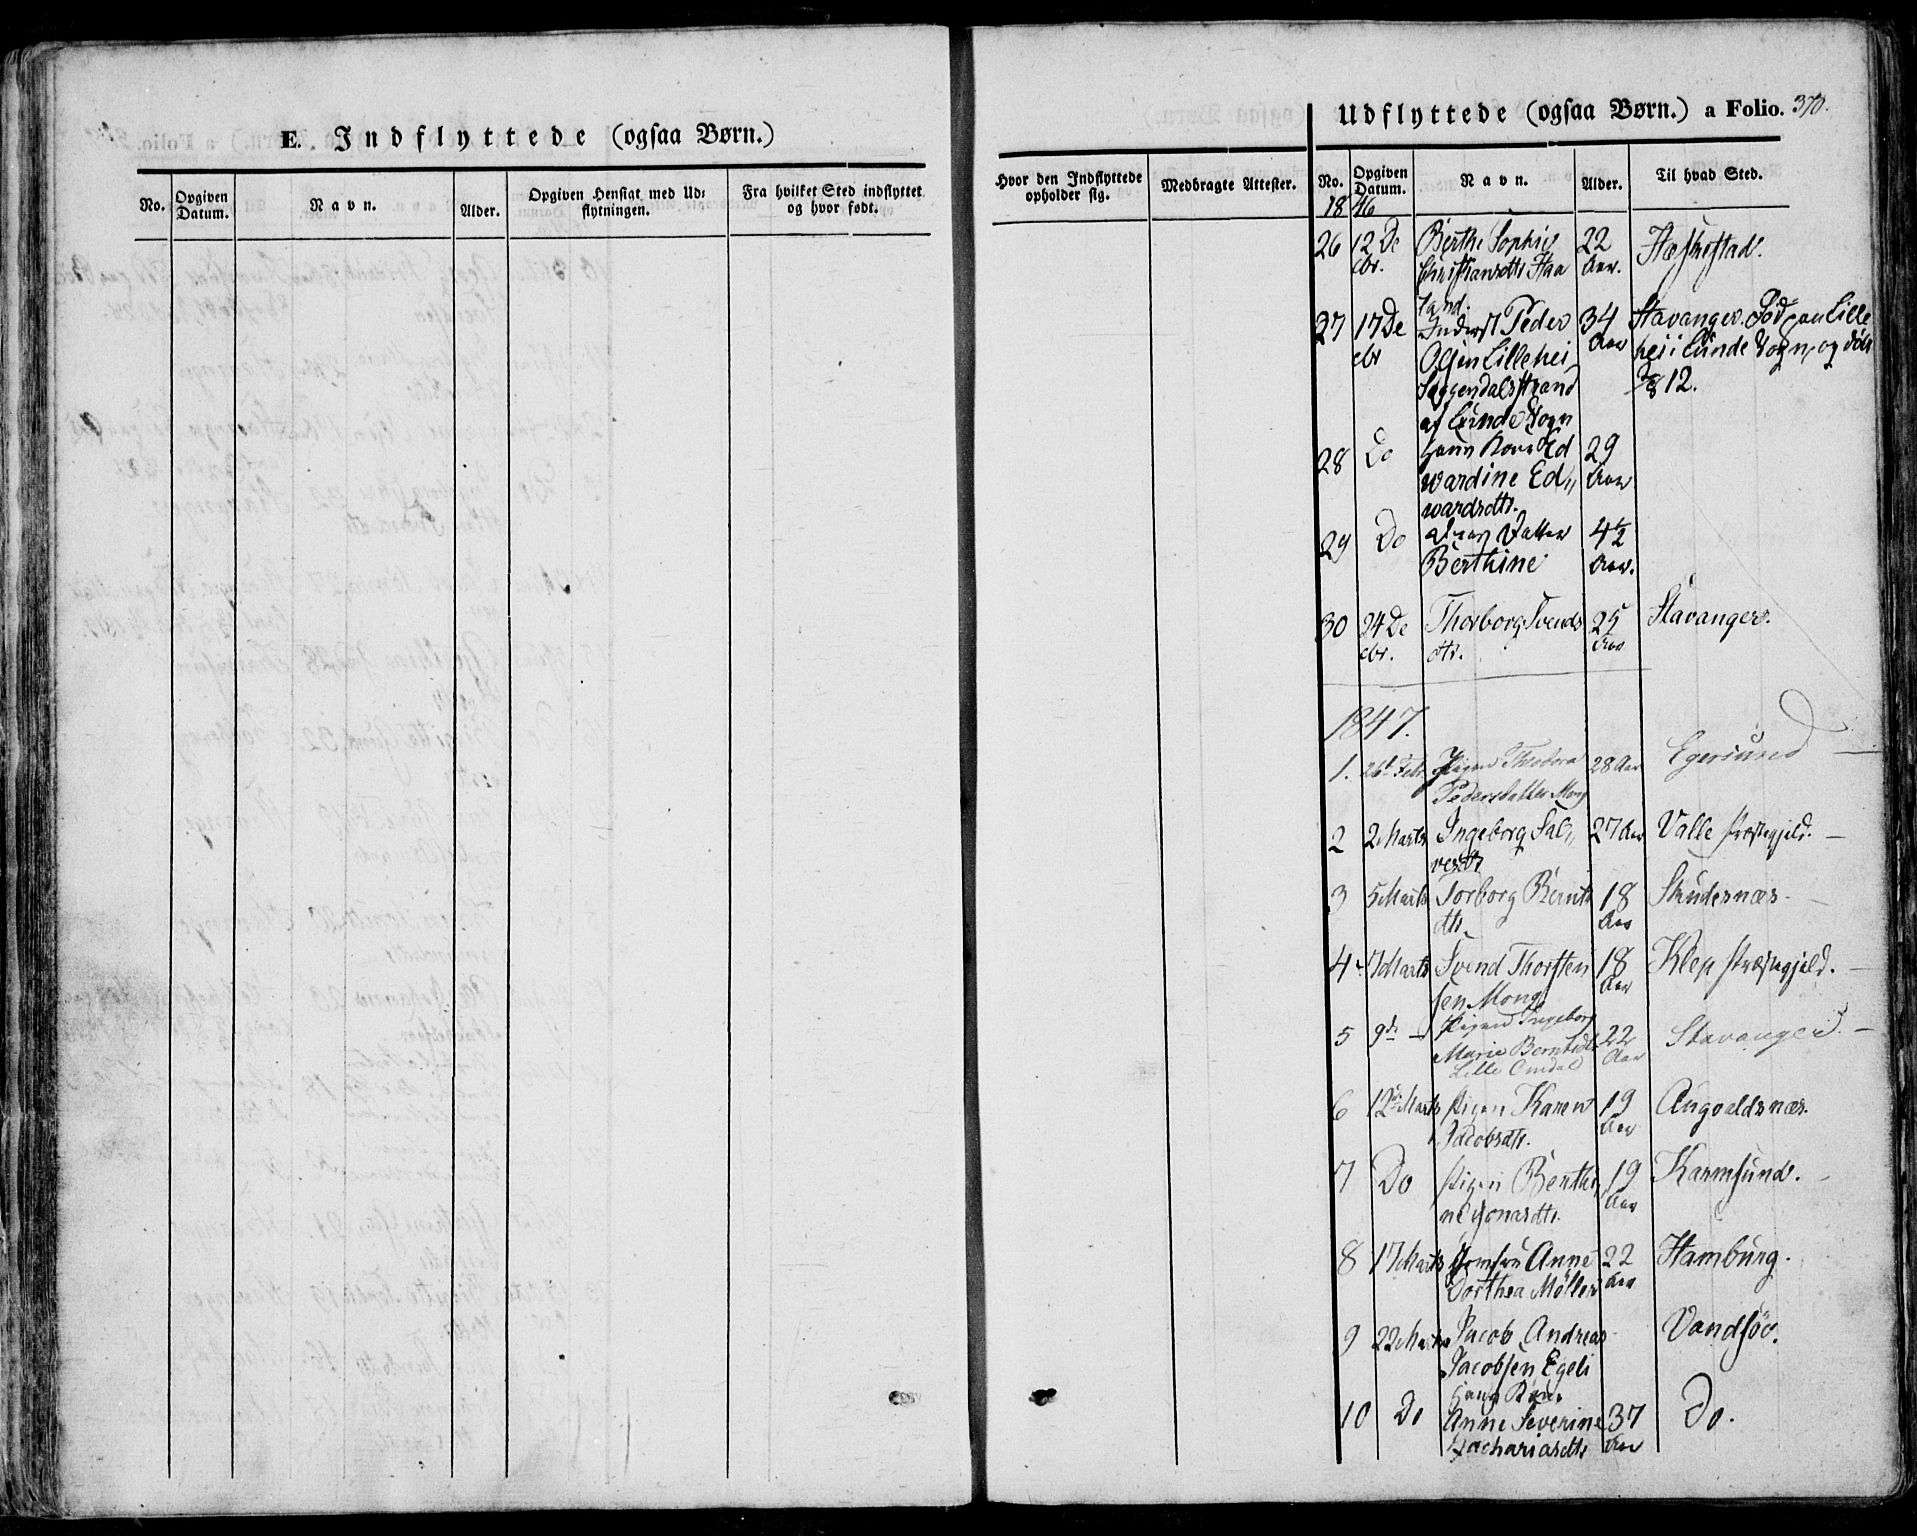 E. Indflyttede (ogsaa Børn.)
No.
Opgiven Datum.
Navn.
Alder.
Opgiven Hensigt med Udflytningen.
Fra hvilket Sted indflyttet og hvor født.
Hvor den Indflyttede opholder sig.
Medbragte Attester.
Udflyttede (ogsaa Børn.) a Folio. 370.
No. Opgiven Datum. Navn. Alder. Til hvad Sted.
1846
26 12 De Berthe Sophie 22 Hæskestad.
cbr. Christiansdtr Haa Aar.
land.
27 17 De Inderst Peder 34 Stavanger. Født paa Lille
cbr Olsen Lillehei Aar hei i Lunde Sogn, og døbt
Soggendalsstrand 12.
af Lunde Sogn
28 Do hans Kone Ed 29
wardine Ed" Aar
wardsdtr.
29 Do Datter 4½
Berthine Aar.
30 24 De Thorborg Svends 25 Stavanger.
cbr. dtr. Aar
1847.
1. 26 Febr Pigen Theodora 28 Aar Egersund
Pedersdatter Mong
2 2 Marts Ingeborg Sal" 27 Aar Valle Præstegjeld.
vesdtr
3 5 Marts Torborg Bernts 18 Skudesnæs
dtr. Aar
4 7 Marts Svend Thorsten 18 Klep Præstegjeld.
sen Mong Aar
5 9de Pigen Ingeborg 22 Stavanger.
Marie Berntsdtr Aar
Lille Omdal
6 12 Marts Pigen Karen 19 Augvaldsnæs.
Jacobsdtr. Aar
7 Do Pigen Berthi 19 Karmsund.
ne Jonasdtr. Aar
8 17 Marts Jomfru Anne 22 Hamburg.
Dorthea Møller Aar
9 22 Marts Jacob Andreas Vandsöe.
Jacobsen Egeli
hans Kone
10 Do Anne Severine 37 Do.
Zachariasdtr Aar